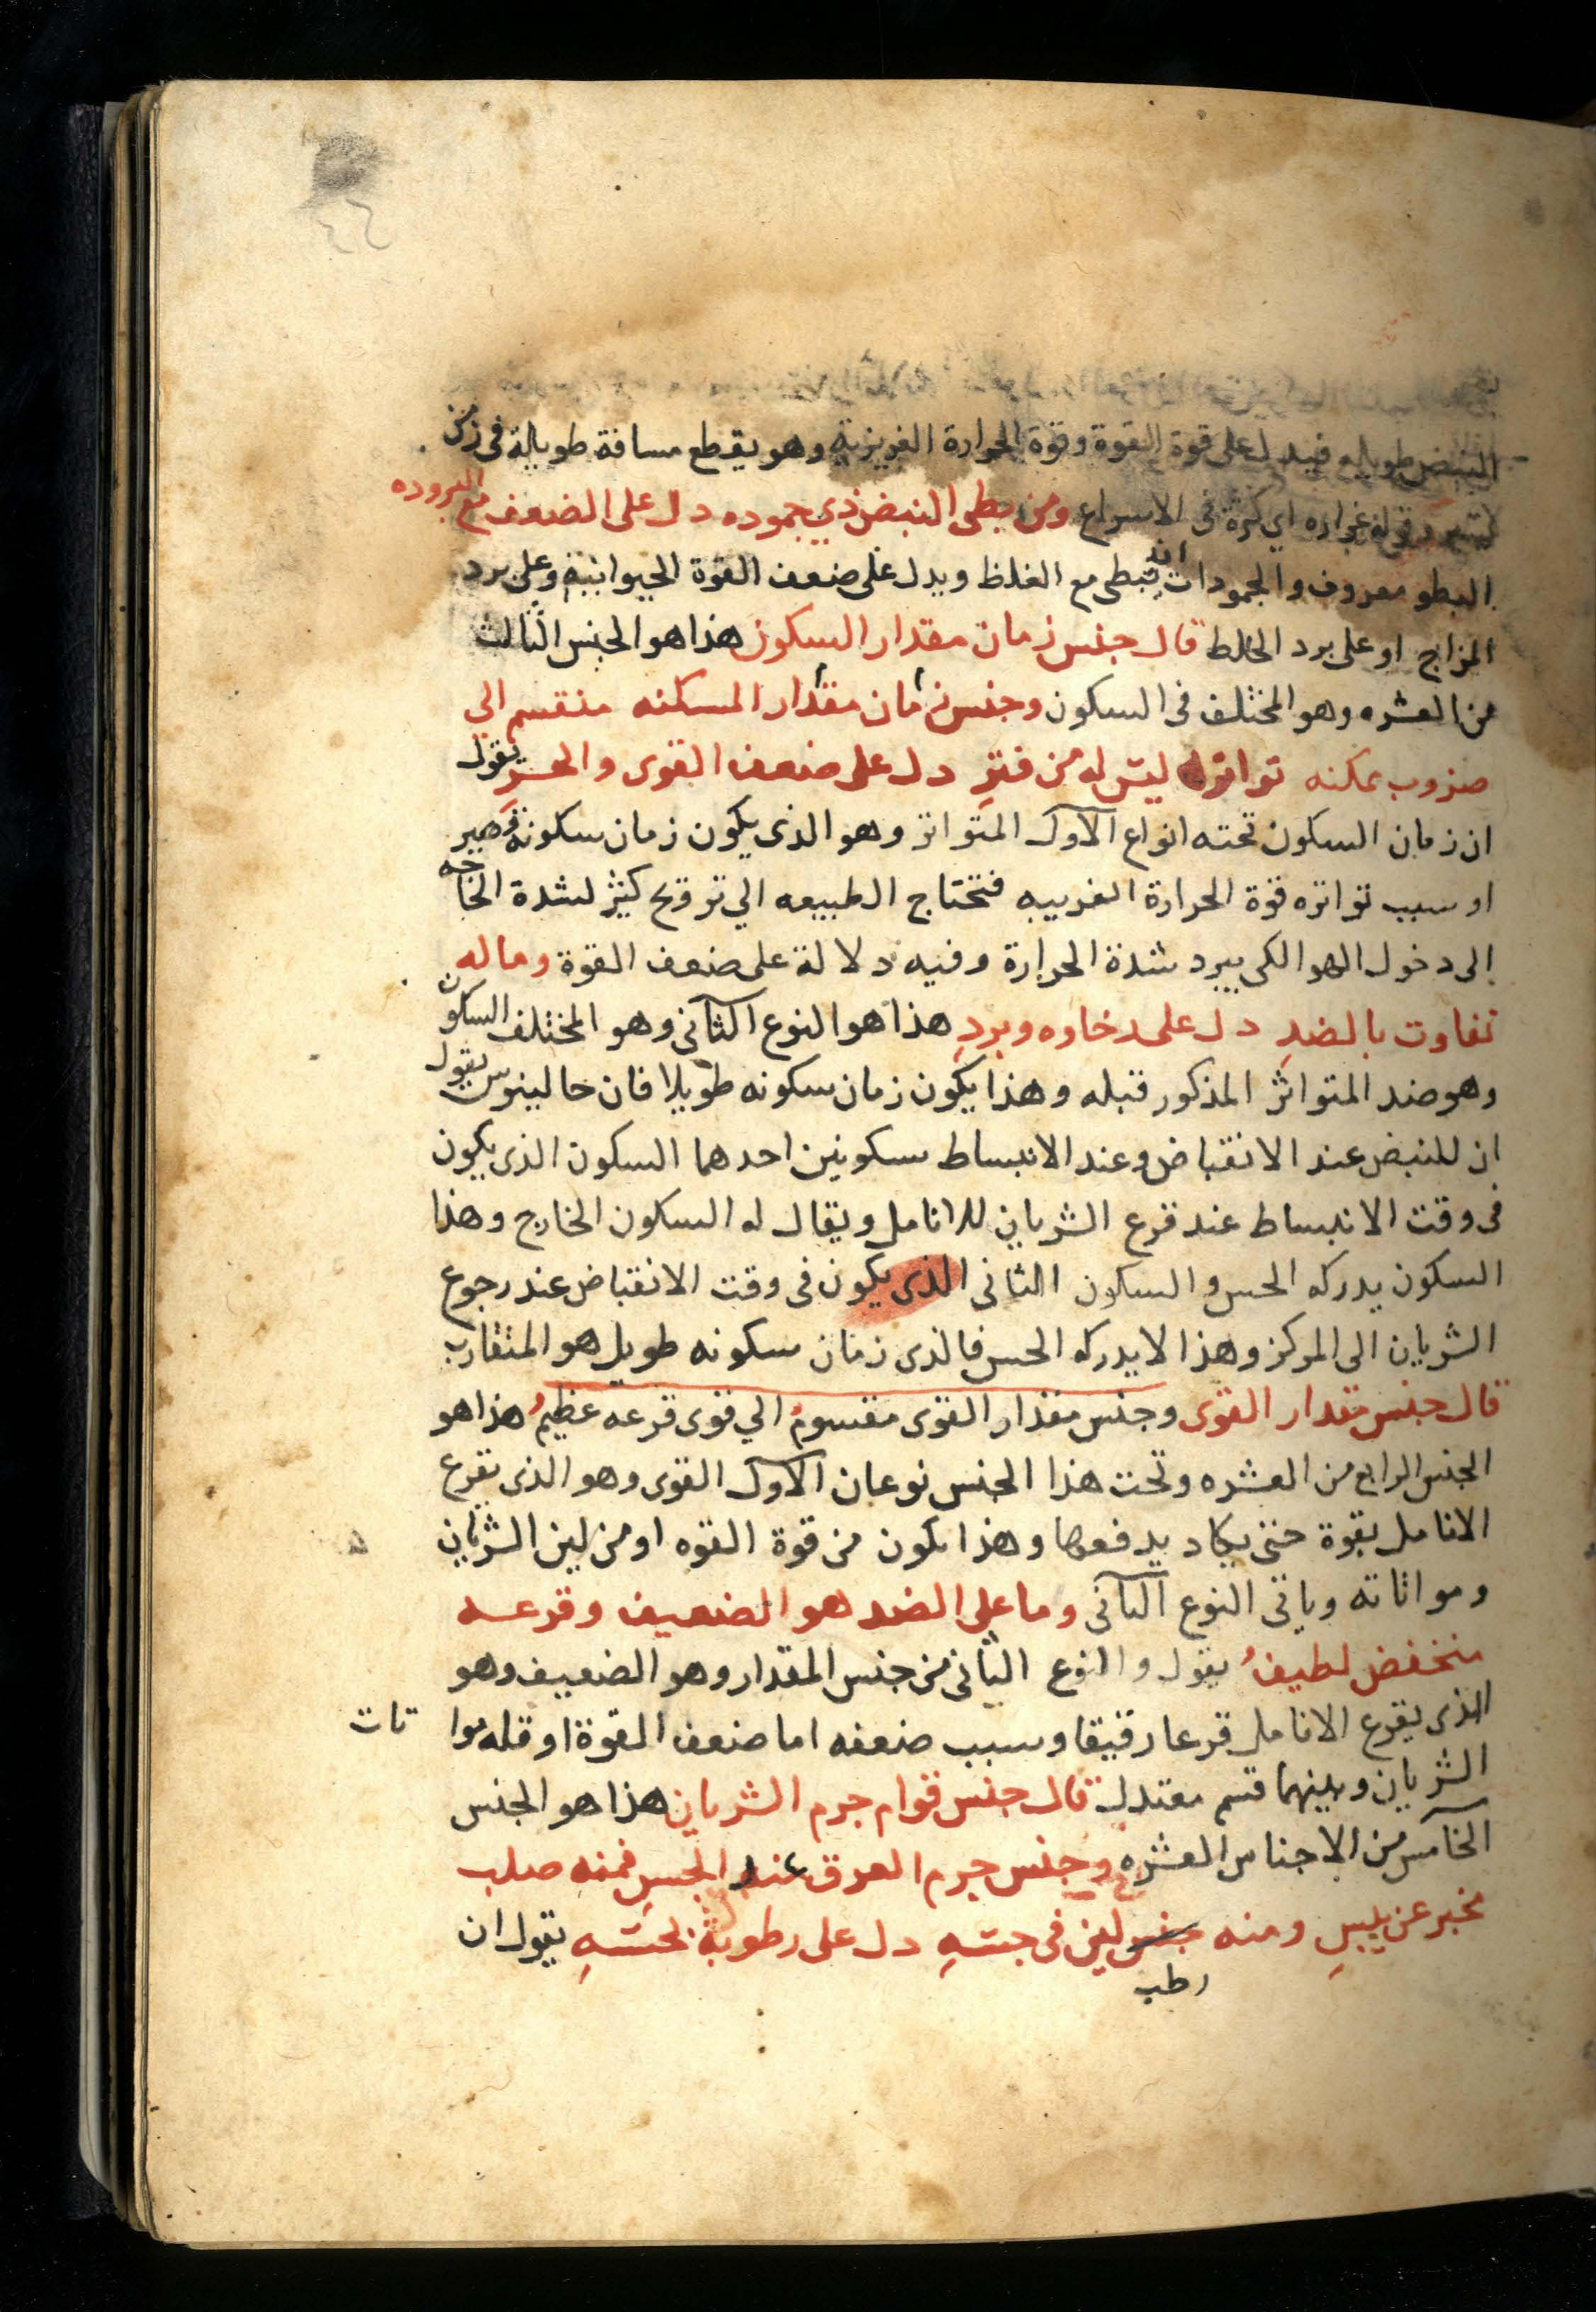 النبض طويله فيدل على قوة القوة وقوة الحرارة الغريزية وهو يقطع مسافة طويلة في زمن
غزاره اي كثرة في الاسراع ومن بطى النبض ذي جموده دل على الضعف مع البروده
البطو معروف والجمودات انه يبطى مع الغلظ ويدل على ضعف القوة الحيوانيه وعلى برد
المزاج او على برد الخلط قال جنس زمان مقدار السكون هذا هو الجنس الثالث
من العشره وهو المختلف في السكون وجنس زمان مقدار المسكنه منقسم الي
ضروب ممكنه تواتره ليس له من فتر دل على ضعف القوى والحر يقول
ان زمان السكون تحته انواع الاول المتواتر وهو الذى يكون زمان سكونه قصير
او سبب تواتره قوة الحرارة الغريبه فتحتاج الطبيعه الي ترويح كثير لشدة الحاجه
الى دخول الهوا لكى يبرد شدة الحرارة وفيه دلالة على ضعف القوة وماله
تفاوت بالضد دل على رخاوه وبرد هذا هو النوع الثانى وهو المختلف السكون
وهو ضد المتواتر المذكور قبله وهذا يكون زمان سكونه طويلا فان جالينوس يقول
ان للنبض عند الانقباض وعند الانبساط سكونين احدهما السكون الذى يكون
فى وقت الانبساط عند قرع الشريان للانامل ويقال له السكون الخارج وهذا
السكون يدركه الحس والسكون الثانى الذى يكون فى وقت الانقباض عند رجوع
الشريان الى المركز وهذا لا يدركه الحس فالذى زمان سكونه طويل هو المتقارب
قال جنس مقدار القوى وجنس مقدار القوى مقسوم الي قوى قرعه عظيم هذا هو
الجنس الرابع من العشره وتحت هذا الجنس نوعان الاول القوى وهو الذى يقرع
الانامل بقوة حتى يكاد يدفعها وهذا يكون من قوة القوه او من لين الشريان
ومواتاته وياتى النوع الثانى وما على الضد هو الضعيف وقرعه
منخفض لطيف يقول والنوع الثانى من جنس المقدار وهو الضعيف وهو
الذى يقرع الانامل قرعا رقيقا وسبب ضعفه اما ضعف القوة او قله موا تات
الشريان وبينهما قسم معتدل قال جنس قوام جرم الشريان هذا هو الجنس
الخامس من الاجناس العشره وجنس جرم العرق عند الجس فمنه صلب
مخبر عن يبس ومنه جنس لين فى جسته دل على رطوبة بحسته يقول ان
رطب